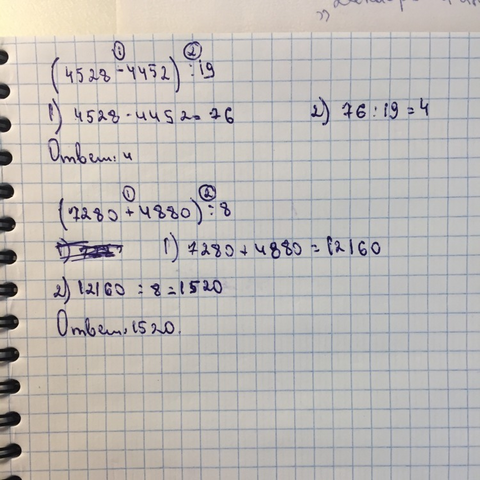 ① ②
(4528 - 4452) : 19
1) 4528 - 4452 = 76 2) 76 : 19 = 4
Ответ: 4
① ②
(7280 + 4880) : 8
1) 7280 + 4880 = 12160
2) 12160 : 8 = 1520
Ответ: 1520.